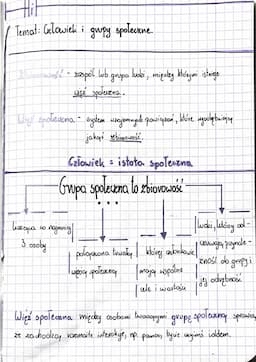 Temat: Człowiek i grupy społeczne.
Zbiorowość - zespół lub grupa ludzi, między którymi istnieje
więź społeczna.
Więź społeczna - system wzajemnych powiązań, które
jakąś zbiorowość.
Człowiek = istota społeczna
Grupa społeczna to zbiorowość
licząca co najmniej
3 osoby
połączona trwałą
więzią społeczną
której członkowie
mają wspólne
cele i wartości
ludzi, którzy od-
przynale-
żność do grupy i
jej odrębność
Więź społeczna między osobami tworzącymi grupę społeczną sprawia,
że zachodzą interakcje, np. pomoc, bycie